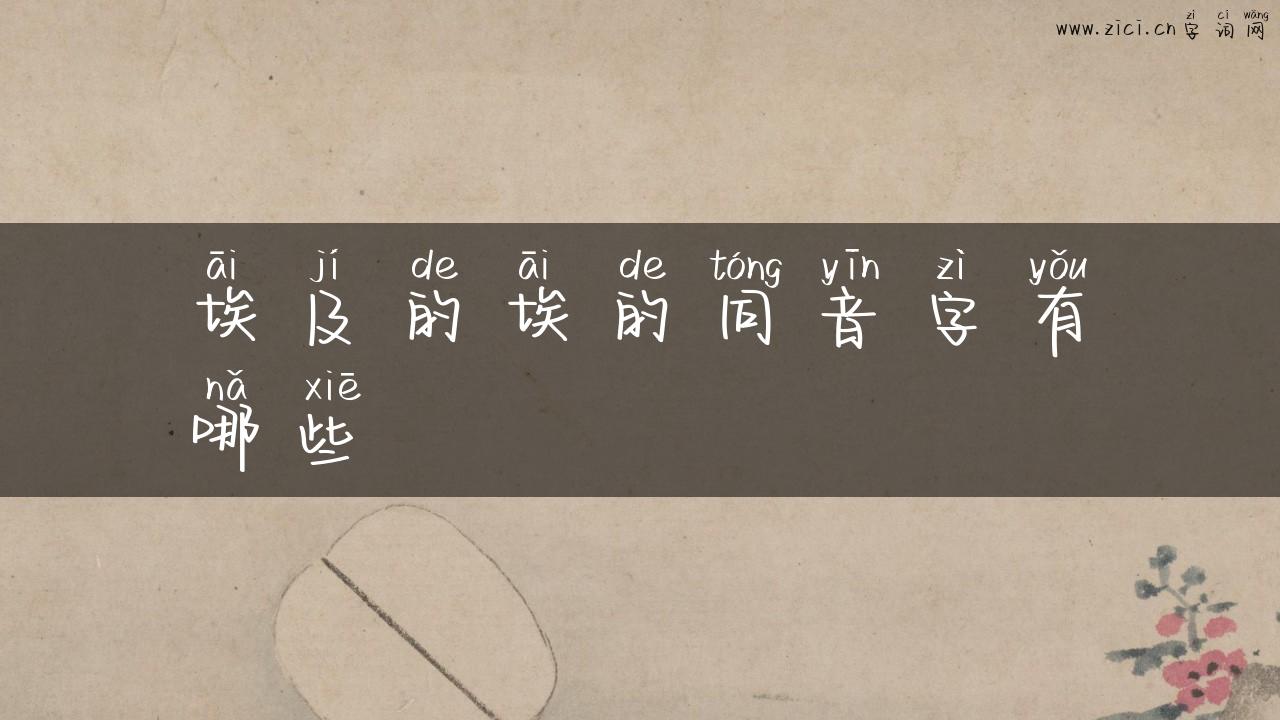 zì cí wǎng
www.zici.cn 字 词 网
āi jí de āi de tóng yīn zì yǒu
埃 及 的 埃 的 同 音 字 有
nǎ xiē
哪 些